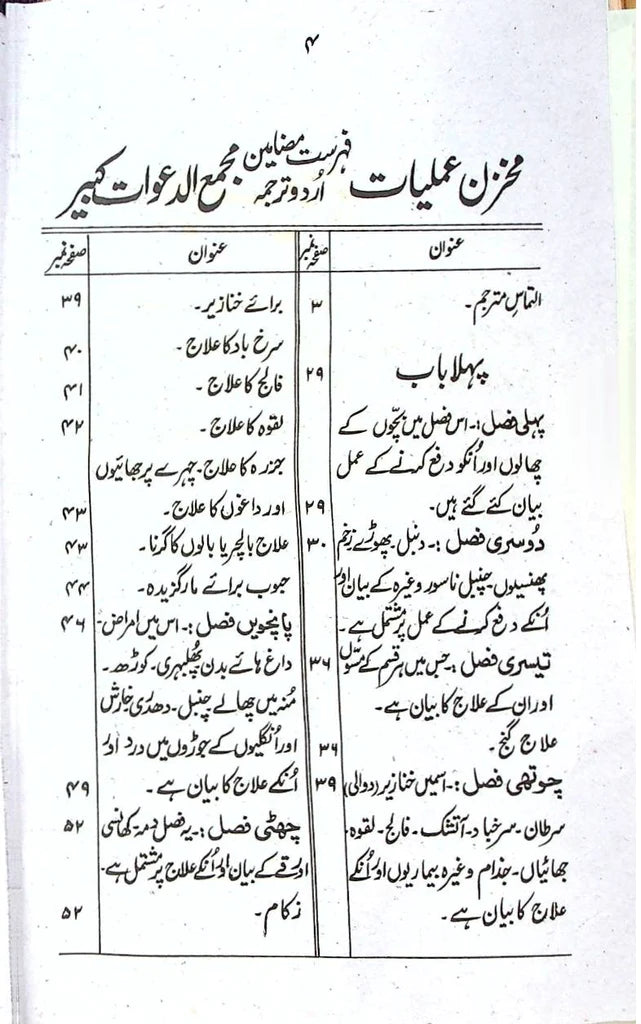 ۴
مخزن عملیات فہرست مضامین اُردو ترجمہ مجمع الدعوات کبیر
عنوان صفحہ نمبر
التماسِ مترجم۔ ۳
پہلا باب ۲۹
پہلی فصل :۔ اس فصل میں بچّوں کے
چھالوں اور اُنکو دفع کرنے کے عمل
بیان کئے گئے ہیں۔ ۲۹
دُوسری فصل :۔ دنبل۔ پھوڑے زخم ۳۰
پھنسیوں۔ چنبل ناسور وغیرہ کے بیان اور
اُنکے دفع کرنے کے عمل پر مشتمل ہے۔
تیسری فصل :۔ جس میں ہر قسم کے مسّوں ۳۶
اور ان کے علاج کا بیان ہے۔
علاج گنج۔ ۳۶
چوتھی فصل :۔ اسمیں خنازیر (دوالی) ۳۹
سرطان۔ سرخباد۔ آتشک۔ فالج۔ لقوہ۔
جھائیاں۔ جذام وغیرہ بیماریوں اور اُنکے
علاج کا بیان ہے۔
عنوان صفحہ نمبر
برائے خنازیر۔ ۳۹
سرخ باد کا علاج۔ ۴۰
فالج کا علاج۔ ۴۱
لقوہ کا علاج۔ ۴۲
کا علاج۔ چہرے پر جھائیوں
اور داغوں کا علاج۔ ۴۳
علاج بالچر یا بالوں کا گرنا۔ ۴۳
حبوب برائے مارگزیدہ۔ ۴۴
پانچویں فصل :۔ اس میں امراض۔ ۴۶
داغ ہائے بدن پُھلبہری۔ کوڑھ۔
مُنہ میں چھالے چنبل۔ دھدری خارش
اور اُنگلیوں کے جوڑوں میں درد اور
اُنکے علاج کا بیان ہے۔ ۴۹
چھٹی فصل :۔ یہ فصل دمہ کھانسی ۵۲
اور قے کے بیان اور اُنکے علاج پر مشتمل ہے۔
زکام۔ ۵۲